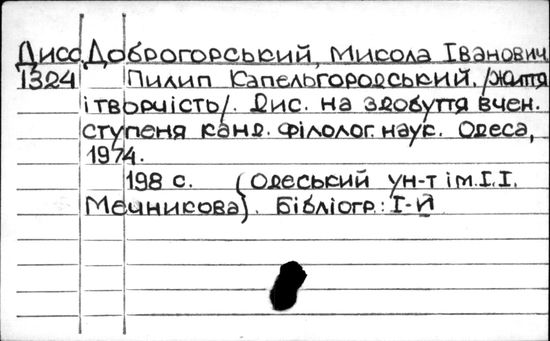 Дисс Доброгорський, Микола Іванович
1324 Пилип Капельгородський. /життя
і творчість/. Дис. на здобуття вчен.
ступеня канд. філолог. наук. Одеса,
1974.
198 с. (Одеський ун-т ім. І.І.
Мечникова). Бібліогр.: І-Й